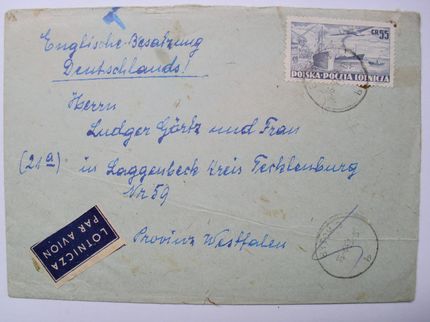 Englische-Besatzung
Deutschlands!
GR 95
POLSKA·POCZTA LOTNICZA
Herrn
Ludger Görtz und Frau
(21a) in Laggenbeck Kreis Tecklenburg
Nr 59
LOTNICZA
PAR AVION
Provinz Westfalen